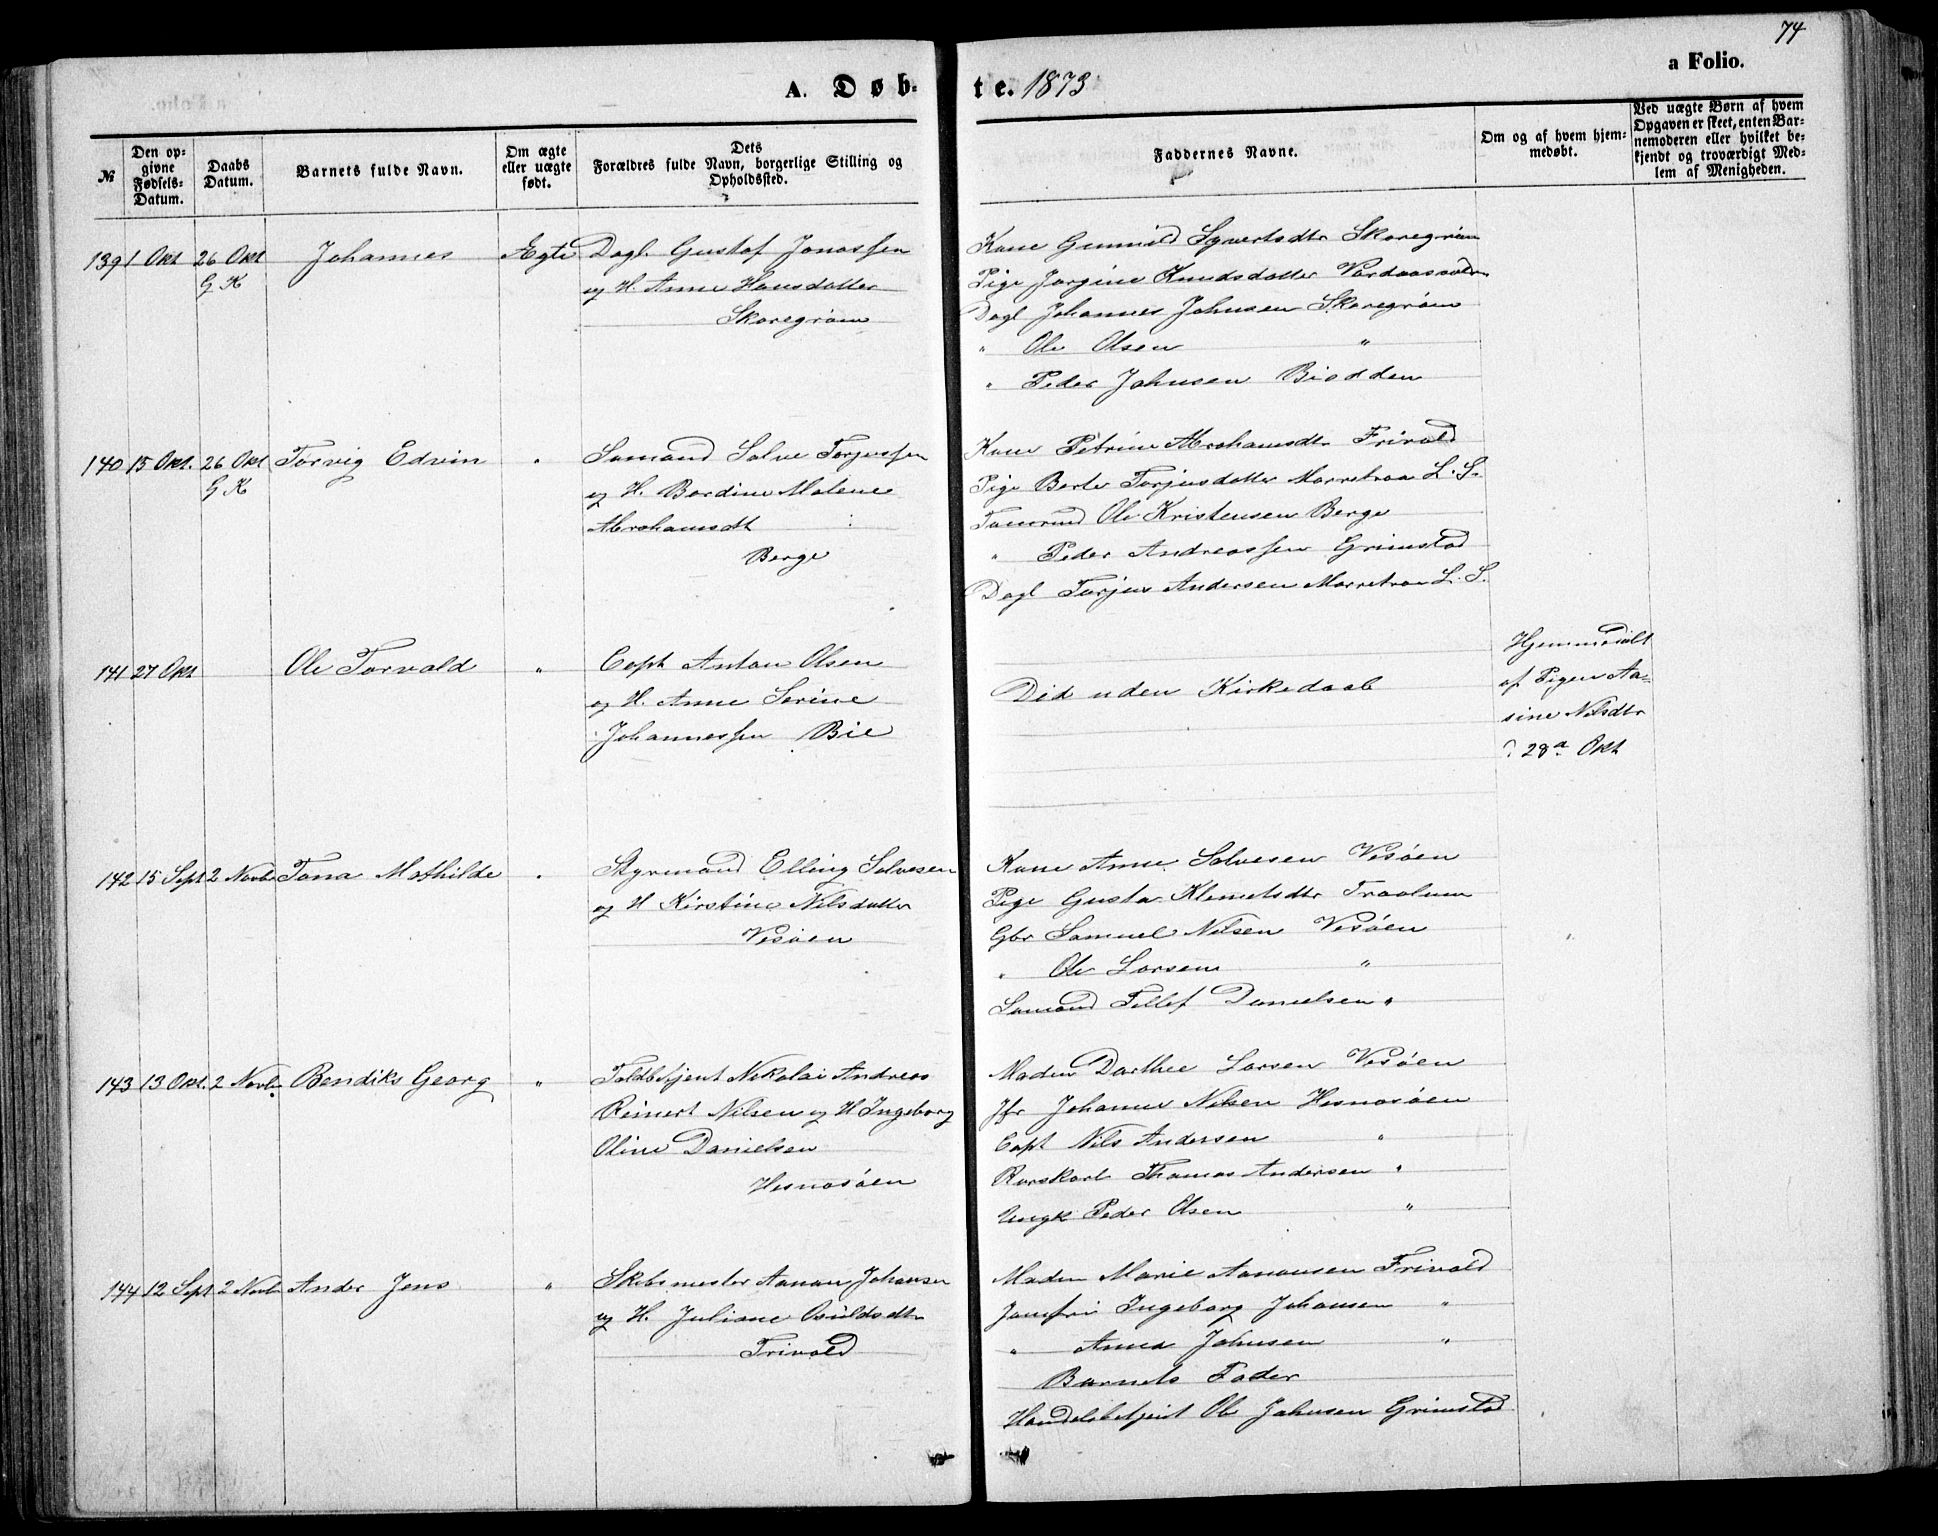 74
A. Døb-
te. 1873
a Folio.
№
Den op-
givne
Fødsels-
Datum.
Daabs
Datum.
Barnets fulde Navn.
Om ægte
eller uægte
født.
Dets
Forældres fulde Navn, borgerlige Stilling og
Opholdssted.
Faddernes Navne.
Om og af hvem hjem-
medøbt.
Ved uægte Børn af hvem
Opgaven er skeet, enten Bar-
nemoderen eller hvilket be-
kjendt og troværdigt Med-
lem af Menigheden.
139 1 Okt 26 Okt Johannes Ægte Dagl. Gustaf Jonassen
G K og H. Anne Hansdatter
Skaregrøm
Kone Gunnild Syvertsdtr Skaregrøm
Pige Jørgine Knudsdatter
Dagl Johannes Johnsen Skaregrøm
" Ole Olsen "
" Peder Johnsen Biodden
140 15 Okt. 26 Okt Torvig Edvin " Sømand Salve Torjussen
G K og H. Bardine Malene
Abrahamsdt
Berge
Kone Petrine Abrahamsdtr Frivold
Pige Berte Torjusdatter Morretraa L. S.
Tømrmd Ole Kristensen Berge
" Peder Andreassen Grimstad
Dagl Torjus Andersen Morretraa L. S.
141 27 Okt Ole Torvald " Capt Anton Olsen
og H. Anne Serine
Johannessen Bie
Død uden Kirkedaab
Hjemmedøbt
af Pigen Aa-
sine Nilsdtr
28de Okt
142 15 Sept 2 Novbr Tona Mathilde " Styrmand Elling Salvesen
og H Kirstine Nilsdatter
Vesøen
Kone Anne Salvesen Vesøen
Pige Gusta Klemetsdtr Traolum
Gbr Samuel Nilsen Vesøen
" Ole Larsen "
Sømand Tellef Danielsen "
143 13 Okt. 2 Novbr Bendiks Georg " Toldbetjent Nikolai Andreas
Reinert Nilsen og H Ingeborg
Oline Danielsen
Hesnæsøen
Maden Dorthee Larsen Vesøen
Jfr Johanne Nilsen Hesnæsøen
Capt Nils Andersen "
Rorskarl Thomas Andersen "
Ungk Peder Olsen "
144 12 Sept 2 Novbr Ander Jens " Skibsmester Aanon Johansen
og H. Juliane Osuldsdtr
Frivold
Maden Marie Aanonsen Frivold
Jomfru Ingeborg Johansen "
" Anna Johnsen "
Barnets Fader
Handelsbetjent Ole Johnsen Grimstad